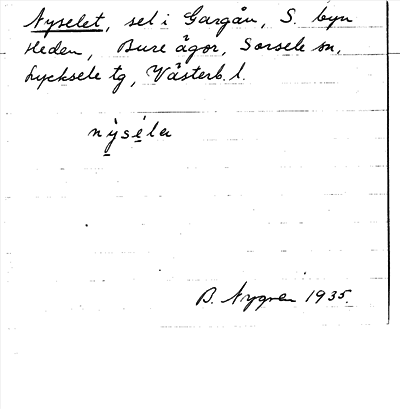 Nyselet, sel i Gargån, S. byn
Heden, Bure ägor, Sorsele sn,
Lycksele tg, Västerb. l.
nỳsélet
B. Nygren 1935.